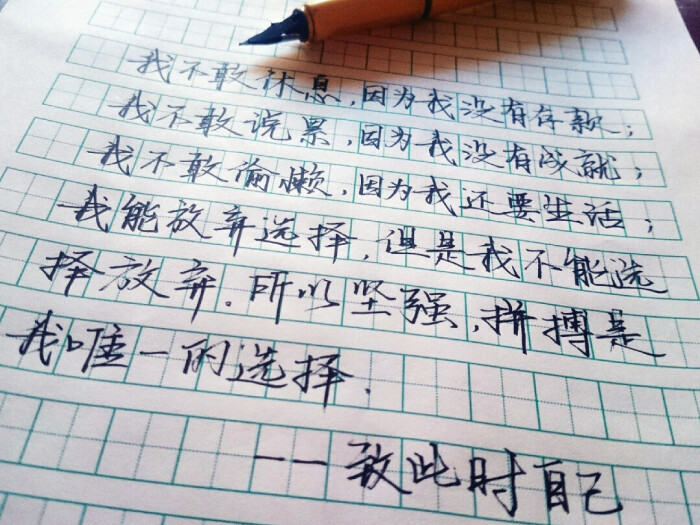 我不敢休息,因为我没有存款;
我不敢说累,因为我没有成就;
我不敢偷懒,因为我还要生活;
我能放弃选择,但是我不能选
择放弃.所以坚强,拼搏是
我唯一的选择.
——致此时自己